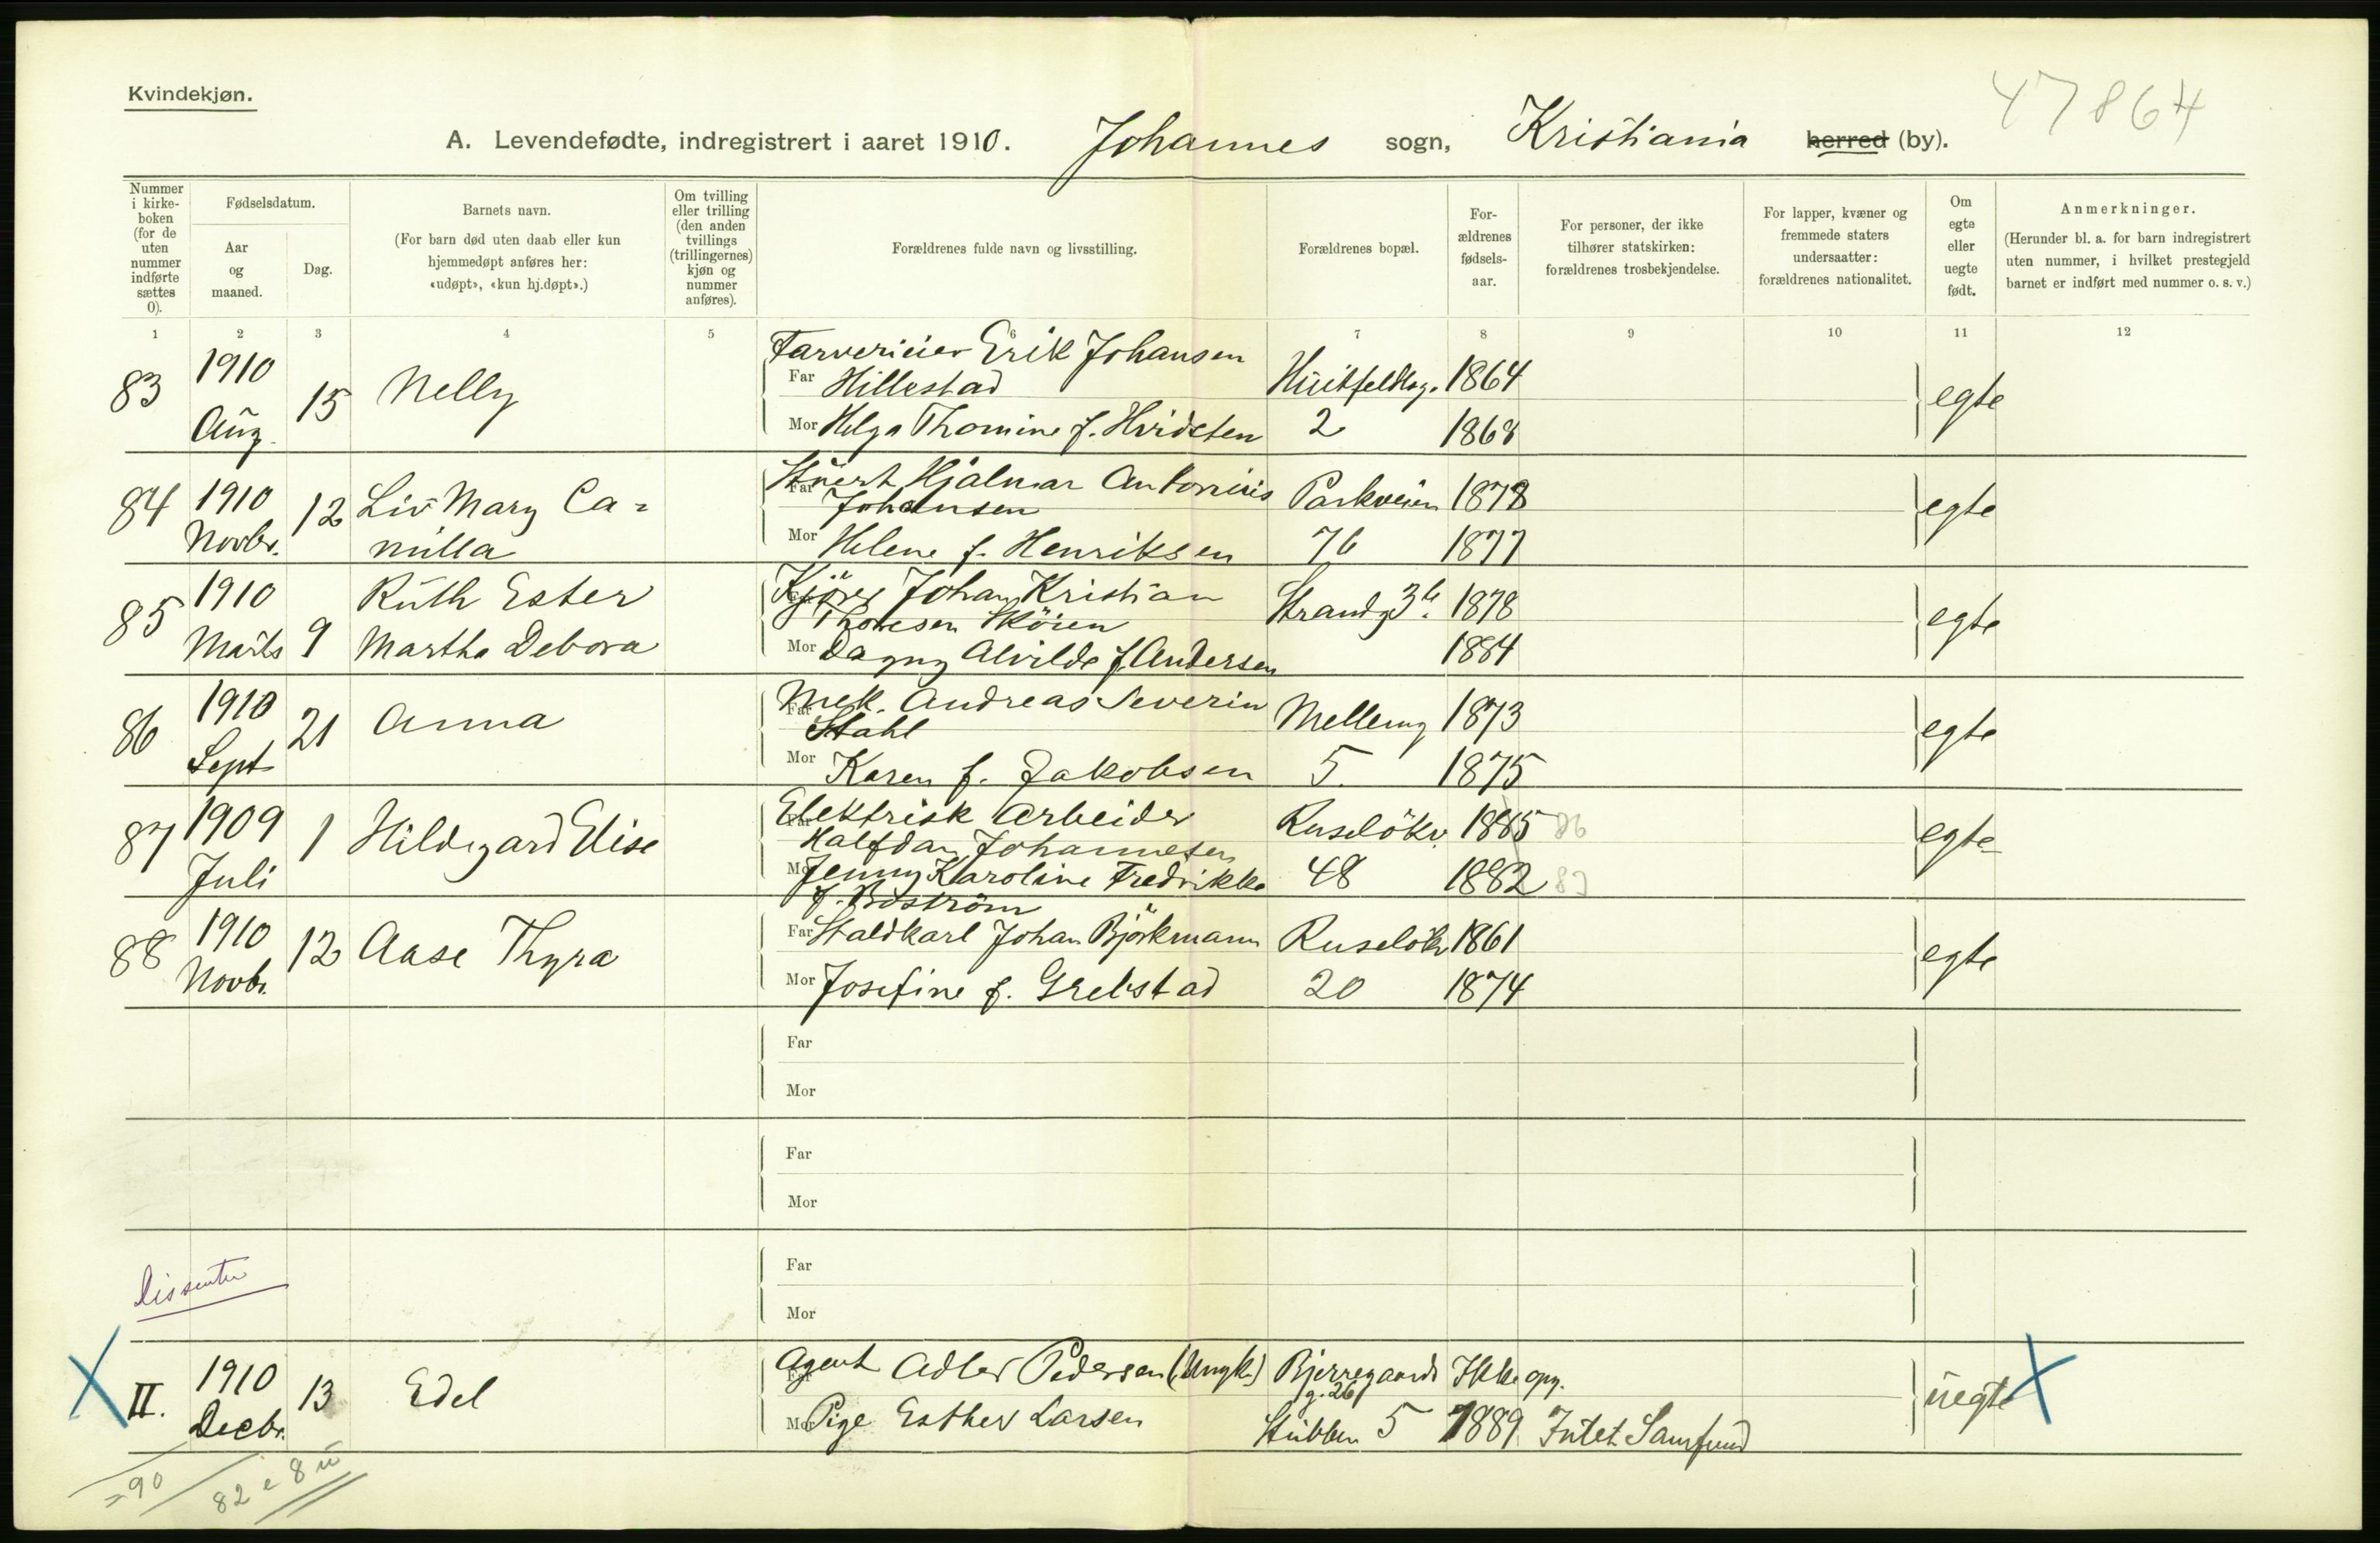 Kvindekjøn.
47864
A. Levendefødte, indregistrert i aaret 1910. Johannes sogn, Kristiania herred (by).
Nummer i kirke-boken (for de uten nummer indførte sættes 0).
Fødselsdatum.
Aar og maaned.
Dag.
Barnets navn.
(For barn død uten daab eller kun hjemmedøpt anføres her: «udøpt», «kun hj.døpt».)
Om tvilling eller trilling (den anden tvillings (trillingernes) kjøn og nummer anføres).
Forældrenes fulde navn og livsstilling.
Forældrenes bopæl.
For-ældrenes fødsels-aar.
For personer, der ikke tilhører statskirken: forældrenes trosbekjendelse.
For lapper, kvæner og fremmede staters undersaatter: forældrenes nationalitet.
Om egte eller uegte født.
Anmerkninger.
(Herunder bl. a. for barn indregistrert uten nummer, i hvilket prestegjeld barnet er indført med nummer o. s. v.)
1 2 3 4 5 6 7 8 9 10 11 12
Farverieier Erik Johansen
83 1910 Aug. 15 Nelly Far Hillestad Huitfeldtsg. 1864 egte
Mor Helga Thomine f. Hvidsten 2 1868
84 1910 Novbr. 12 Liv Mary Ca=
milla
Far Stuert Hjalmar Antonius Parkveien 1878 egte
Johansen
Mor Helene f. Henriksen 76 1877
85 1910 Marts 9 Ruth Ester
Martha Debora
Far Kjører Johan Kristian Strandg. 3b. 1878 egte
Thoresen Skøien
Mor Dagny Alvilde f. Andersen 1884
86 1910 Sept 21 Anna
Far Mek. Andreas Severin Mellemg 1873 egte
Stahl
Mor Karen f. Jakobsen 5. 1875
87 1909 Juli 1 Hildegard Elise
Far Elektrisk Arbeider Ruseløkv. 1885 86 egte
Halfdan Johannesen
Mor Jenny Karoline Fredrikke 48 1882 83
f. Boström
88 1910 Novb. 12 Aase Thyra
Far Staldkarl Johan Björkmann Ruseløkv 1861 egte
Mor Josefine f. Grebstad 20 1874
Far
Mor
Far
Mor
Dissenter
Far
Mor
X II. 1910 Decbr. 13 Edel
Far Agent Adler Pedersen (Ungk.) Bjerregaards Ikke opg. uegte X
g. 26
Mor Pige Esther Larsen Stubben 5 1889 Intet Samfund
=90 82 e 8 u